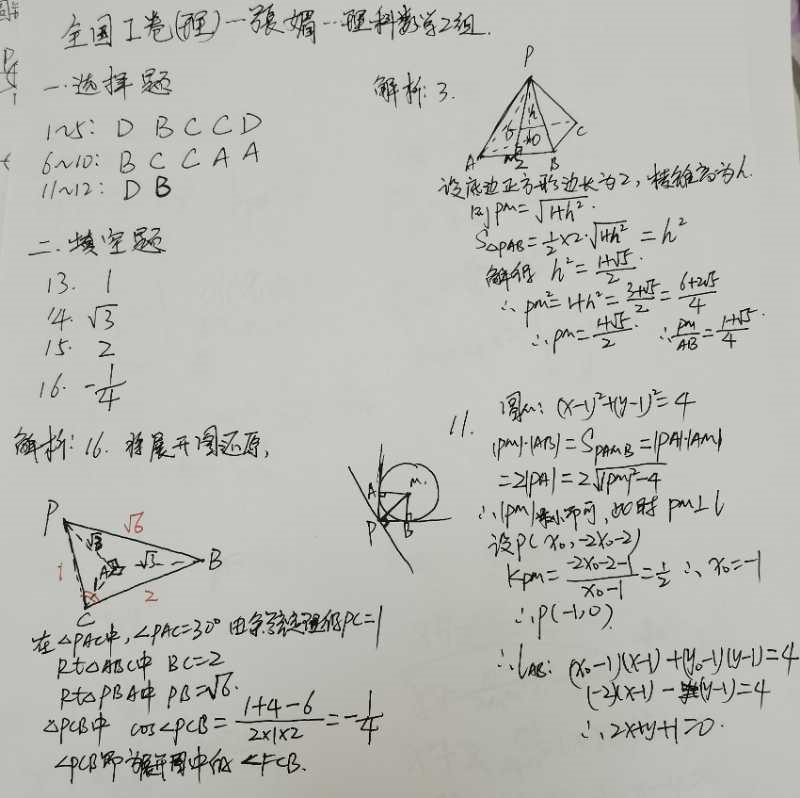 全国I卷(理)—张媚—理科数学2组.
一.选择题
1~5: D B C C D
6~10: B C C A A
11~12: D B
二.填空题
13. 1
14. √3
15. 2
16. -1/4
解析: 16. 将展开图还原,
P
√6
√3
A
√3
B
1
2
C
在△PAC中, ∠PAC=30° 由余弦定理得PC=1
Rt△ABC中 BC=2
Rt△PBA中 PB=√6.
△PCB中 cos∠PCB = (1+4-6)/(2×1×2) = -1/4
∠PCB即为展开图中的 ∠FCB.
解析: 3.
P
h
C
A
M
2
B
设底边正方形边长为2, 棱锥高为h.
则 PM=√(1+h²).
S△PAB=1/2×2·√(1+h²) = h²
解得 h²=(1+√5)/2.
∴ PM²=1+h²=(3+√5)/2=(6+2√5)/4
∴ PM=(1+√5)/2 ∴ PM/AB=(1+√5)/4.
11. 圆M: (x-1)²+(y-1)²=4
|PM|·|AB|=S_PAMB=|PA|·|AM|
=2|PA|=2√(|PM|²-4)
∴|PM|最小即可, 此时 PM⊥l
A
M
P
B
设P(x₀,-2x₀-2)
K_PM=(-2x₀-2-1)/(x₀-1)=1/2 ∴x₀=-1
∴P(-1,0)
∴l_AB: (x₀-1)(x-1)+(y₀-1)(y-1)=4
(-2)(x-1) - (y-1)=4
∴2x+y+1=0.